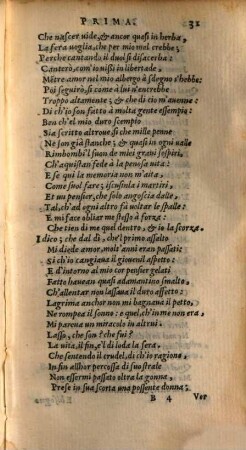 PRIMA. 32
Che nascer vide, & ancor quasi in herba,
La fera voglia, che per mio mal crebbe;
Perche cantando il duol si disacerba;
Canterò, com'io vissi in libertade,
Mētre amor nel mio albergo à sdegno s'hebbe:
Poi seguirò, si come à lui n'encrebbe
Troppo altamente; & che di ciò m'auenne:
Di ch'io son fatto à molta gente essempio:
Ben che'l mio duro scempio
Sia scritto altroue, si che mille penne
Ne son già stanche; & quasi in ogni valle
Rimbombi'l suon de miei graui sospiri,
Ch'aquistan fede à la penosa vita:
E se qui la memoria non m'aita,
Come suol fare; iscusila i martiri,
Et un pensier, che solo angoscia dalle
Tal, ch'ad ogni altro fà voltar le spalle:
E mi face obliar me stesso à forza:
Che tien di me quel dentro, & io la scorza.
I dico; che dal dì, che'l primo assalto
Mi diede amor, molt'anni eran passati:
Si ch'io cangiaua il giouenil aspetto:
E d'intorno al mio cor pensier gelati
Fatto haueano quasi adamantino smalto,
Ch'allentar non lassaua il duro affetto:
Lagrima anchor non mi bagnaua il petto,
Ne rompea il sonno: e quel, ch'in me non era,
Mi pareua un miracolo in altrui.
Lasso, che son? che fui?
La vita, il fin, e'l di loda la sera,
Che sentendo il crudel, di ch'io ragiono,
In fin allhor percossa di suo strale
Non essermi passato oltra la gonna,
Prese in sua scorta una possente donna;
B 4 Ver